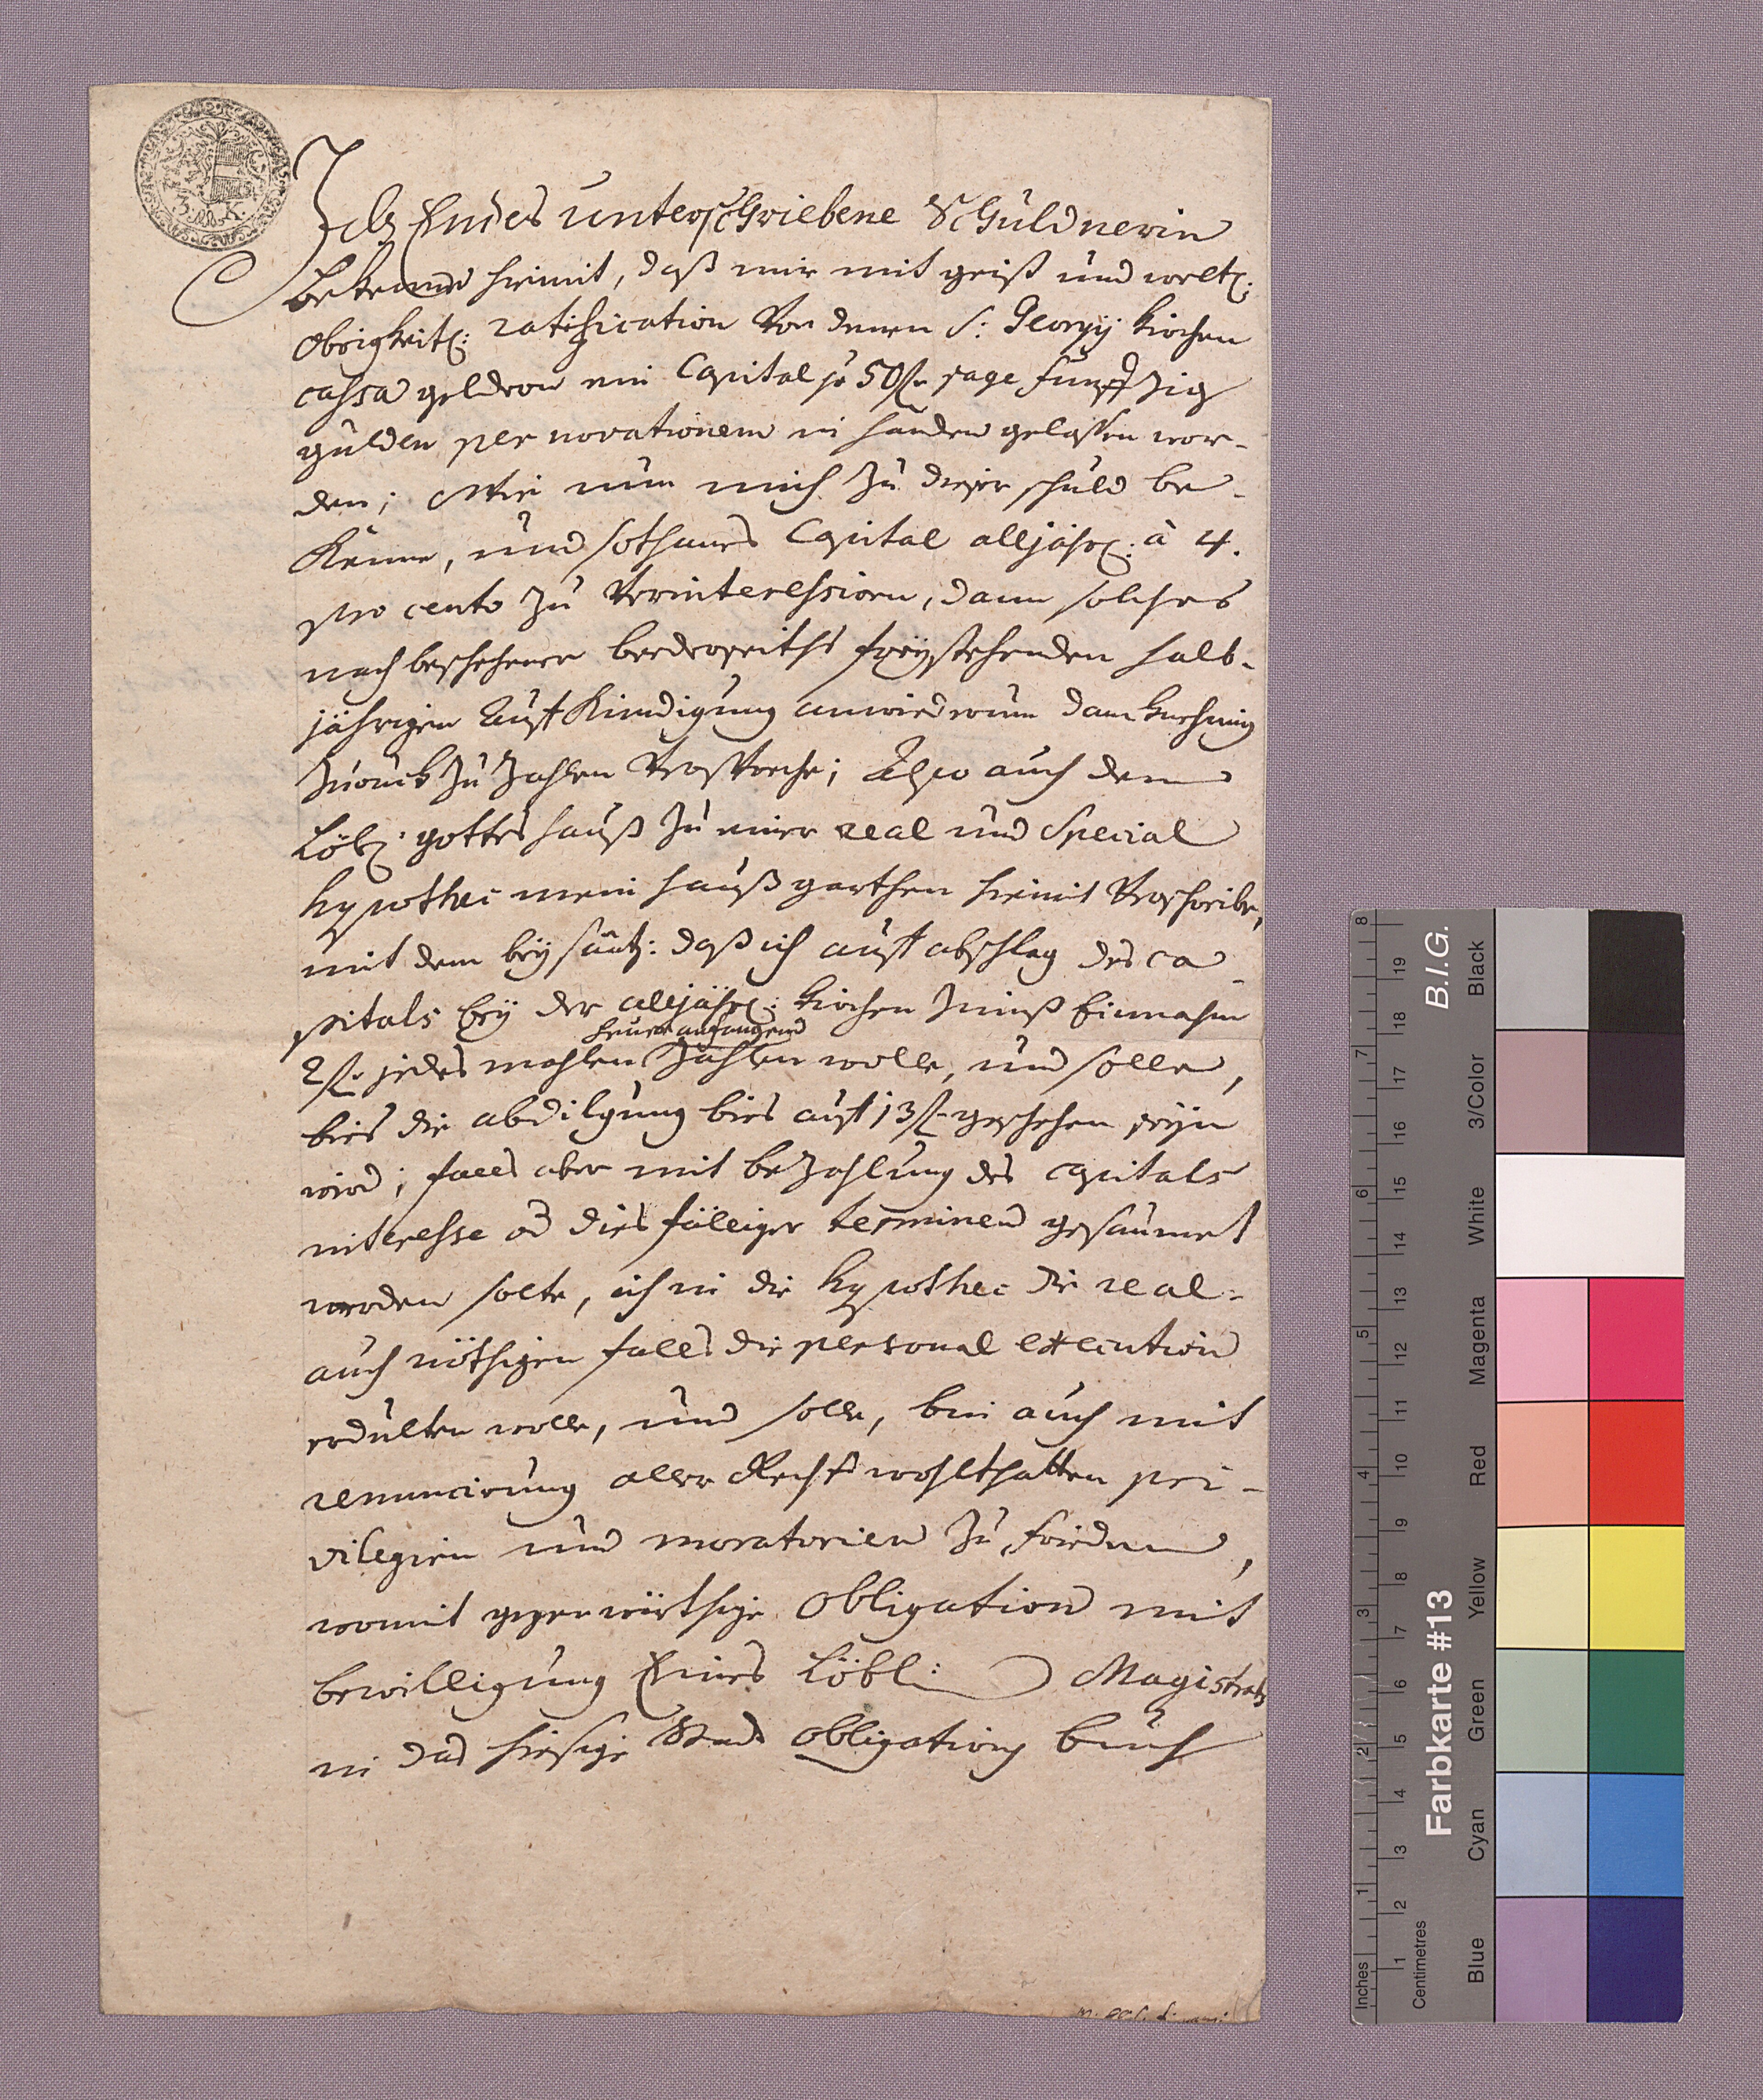 3 K.
Ich Endes unterschriebene Schuldnerin
bekenne hiemit, daß mir mit geist und weltl:
obrigkeitl: ratification von denen S: Georgij Kirchen
cassa geldern ein Capital pr 50 fl. sage funffzig
gulden per novationem in handen gelassen wor-
den; Wie nun mich zu dieser schuld be-
kenne, und sothanes Capital alljährl: à 4.
pro cento zu verinteressiren, dann solches
nach beschehener beederseiths freystehenden halb-
jährigen Auff Kündigung anwiederum danknehmig
zuruck zu zahlen verspreche; Also auch dem
Löbl: gottes hauß zu einer real und Special
hypothec mein hauß garthen hiemit verschreibe,
mit dem beysatz: daß ich auff abschlag des ca-
pitals bey der alljährl: Kirchen Zinnß Einnahm
heuer anfangend
2 fl. jedes mahlen zahlen wolle, und solle,
bies die abdilgung bies auff 13 fl. geschehen seyn
wird; falls aber mit bezahlung des capitals
interesse od dies fälliger terminen gesaumet
werden solte, ich in die hypothec die real-
auch nöthigen falls die personal execution
erdulten wolle, und solle, bin auch mit
renuncirung aller Rechts wohlthatten pri-
vilegien und moratorien zu frieden,
womit gegenwürthige Obligation mit
bewilligung Eines Löbl: Magistrats
in das hiesige Stadt obligations buch
Inches
Centimetres
1 2 3 4 5 6 7 8
1 2 3 4 5 6 7 8 9 10 11 12 13 14 15 16 17 18 19
Farbkarte #13
B.I.G.
Blue
Cyan
Green
Yellow
Red
Magenta
White
3/Color
Black